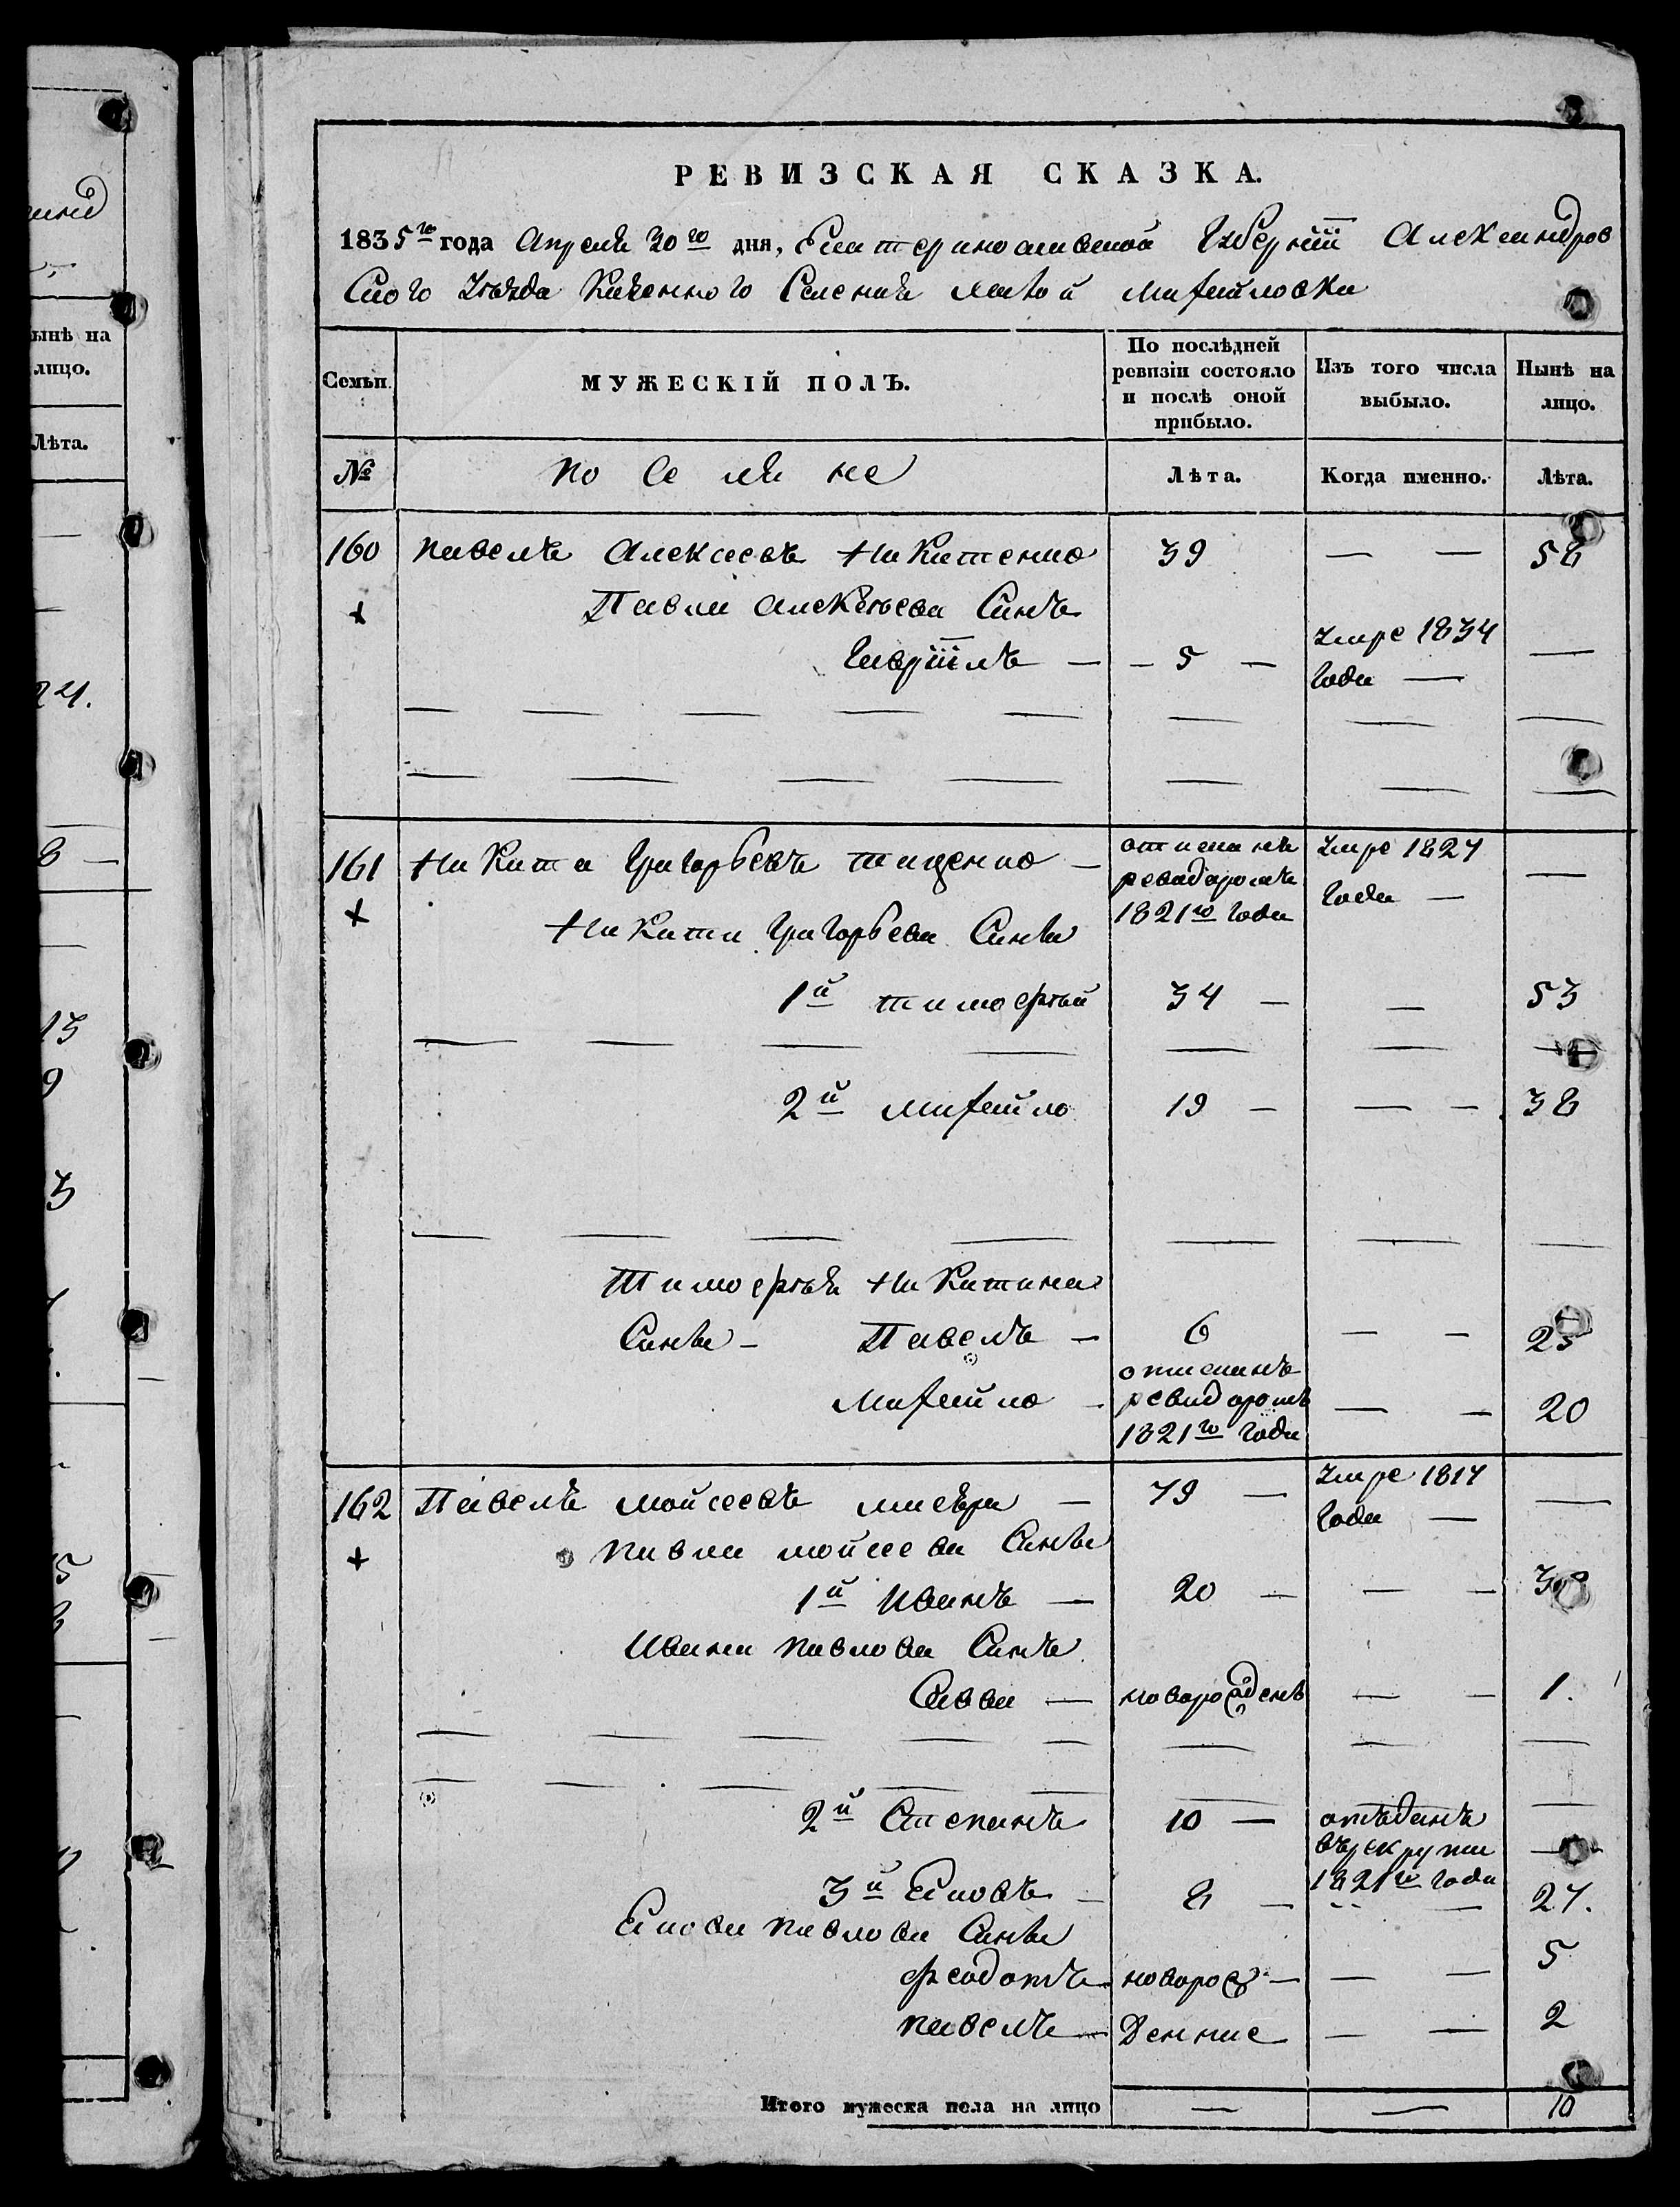 РЕВИЗСКАЯ СКАЗКА.
1835го года Апреля 30го дня, Екатеринославской Губернiи Александров
Ского Уѣзда Казенного Селения малой михайловки
ынѣ на
лицо.
Лѣта.
Семьи.
МУЖЕСКІЙ ПОЛЪ.
По послѣдней
ревизіи состояло
и послѣ оной
прибыло.
Изъ того числа
выбыло.
Нынѣ на
лицо.
№
поселяне
Лѣта.
Когда именно.
Лѣта.
160 павелъ Алексеевъ Никитенко 39 — — 58
Павла Алексѣева Синъ
Гаврiилъ — — 5 — умре 1834 —
Года —
161 Никита Григорьевъ тищенко — отписанъ умре 1827 —
ревидаромъ Года —
1821го Года
Никити Григорьева Сини
1й тимофей 34 — — 53
2й михайло 19 — — — 38
Тимофея Никитина
Сини — Павелъ — 6 — — 25
отписанъ
Михайло — ревидаромъ — — 20
1821го Года
162 Павелъ мойсеевъ — 79 — умре 1817 —
Года —
павла мойсеева Сини
1й Иванъ — 20 — — —
Ивана павлова Синъ
Савва — новорожденъ — — 1.
2й Степанъ 10 — отъданъ —
въ рекрути
1821го Года
3й Яковъ — 8 — — 27.
Якова павлова Сини
феодотъ новорож — — — 5
павелъ — денние — — 2
Итого мужеска пола на лицо — — 10
24.
8 —
13
9
3